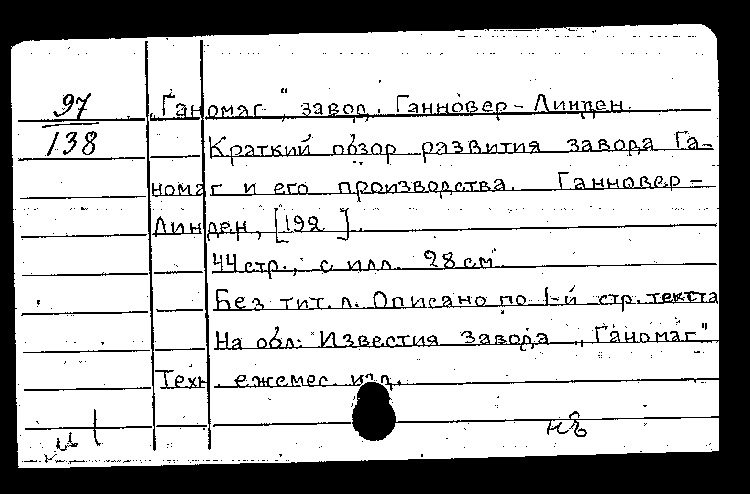 97 „Ганомаг", завод. Ганновер-Линден.
138 Краткий обзор развития завода Га-
номаг и его производства. Ганновер-
Линден, [192 ].
44 стр., с илл. 28 см.
Без тит. л. Описано по 1-й стр. текста
На обл: Известия завода „Ганомаг"
Техн. ежемес. изд.